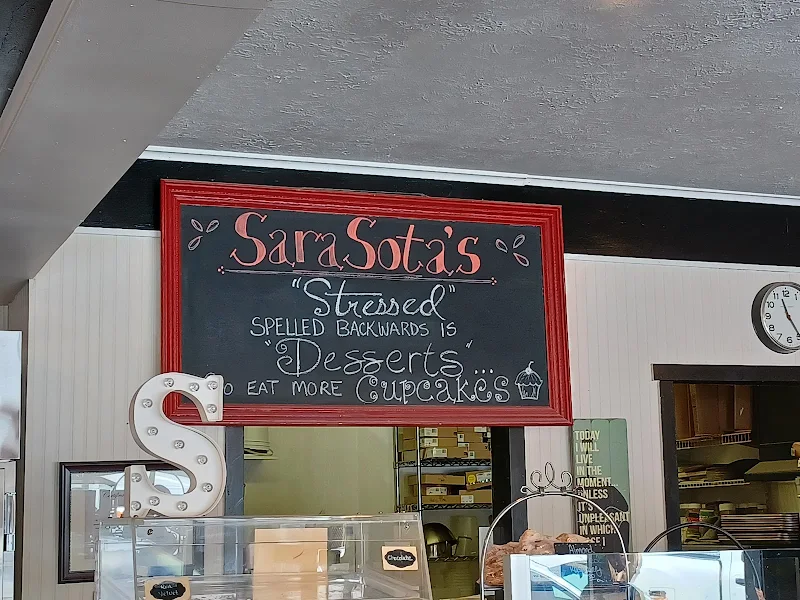 SaraSota's
"Stressed"
SPELLED BACKWARDS IS
"Desserts"...
O EAT MORE Cupcakes
S
TODAY
I WILL
LIVE
IN THE
MOMENT...
UNLESS
IT'S
UNPLEASANT
IN WHICH
Chocolate
Red
Velvet
Almond